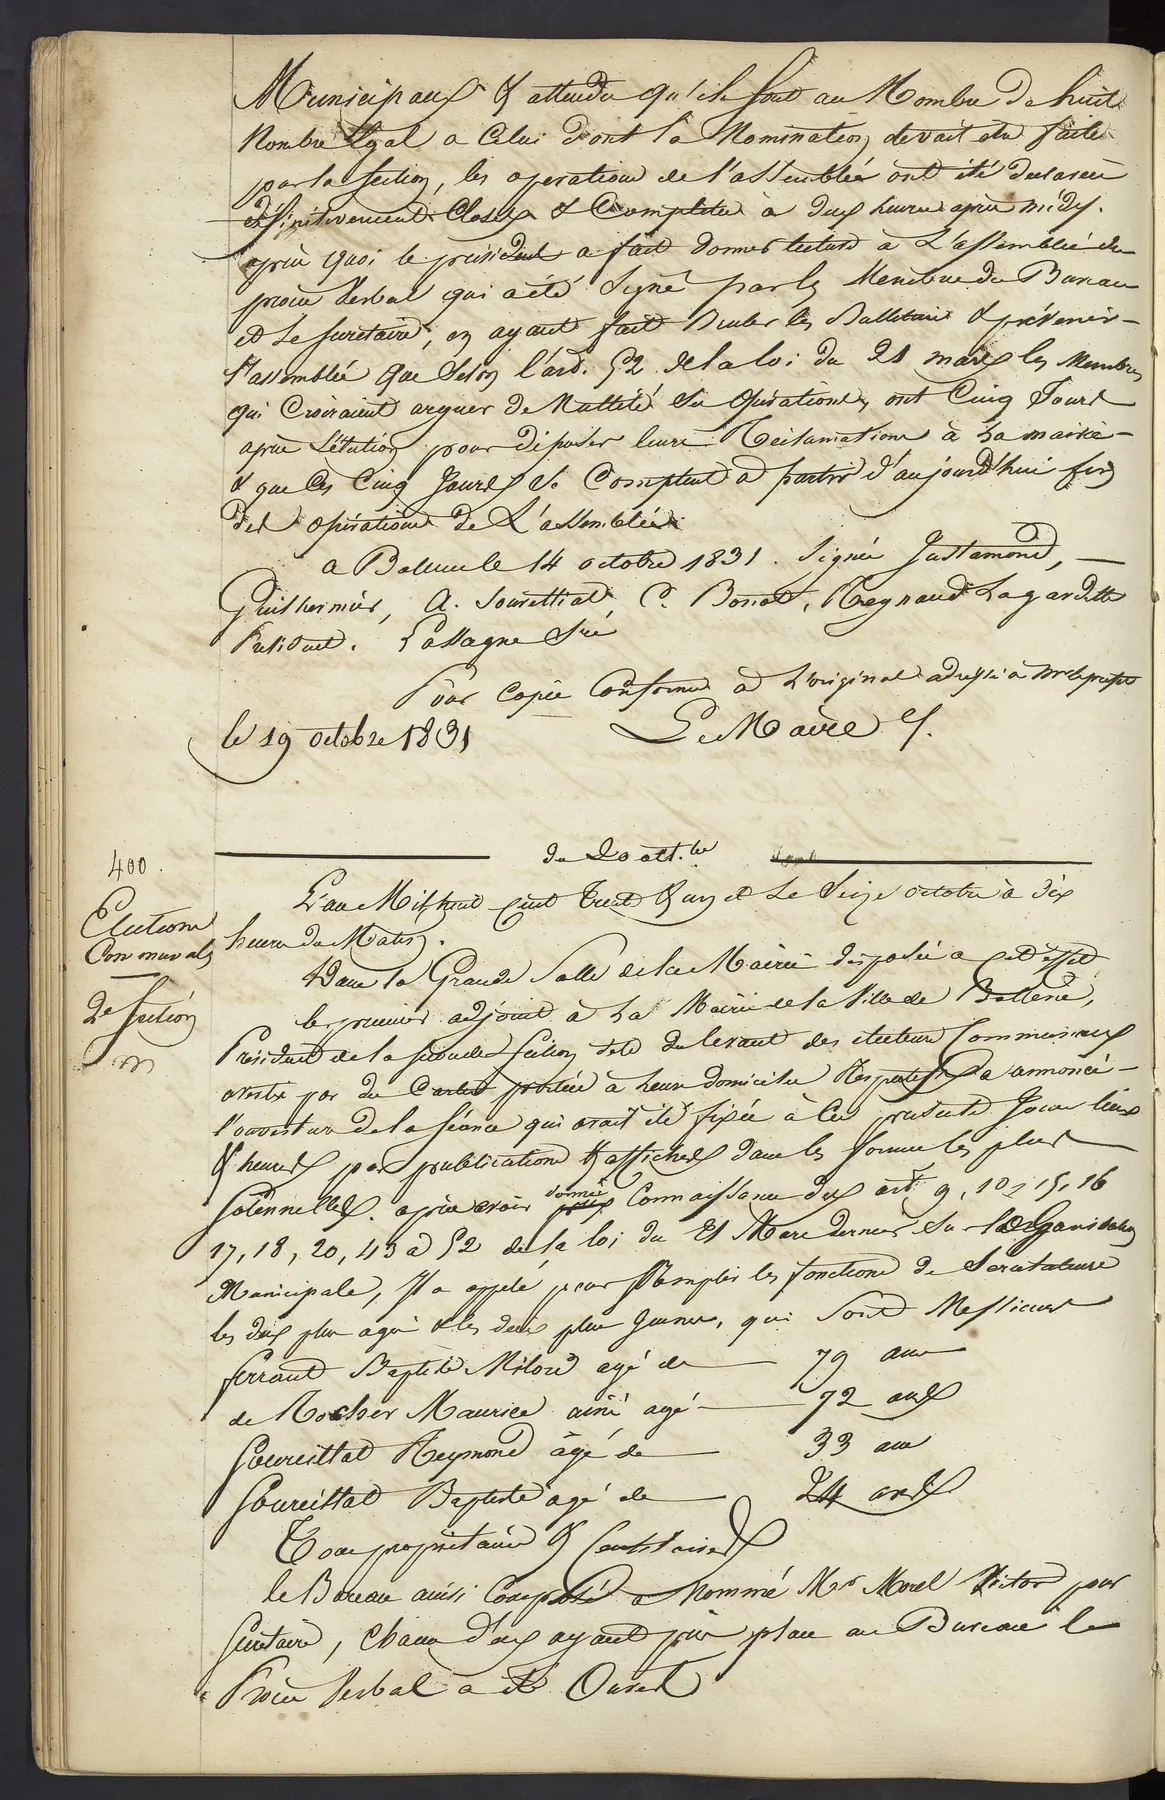 Municipaux & attendu qu'ils sont au Nombre de huit
Nombre Egal a Celui dont la Nomination devait être faite
par la Section, les operations de l'assemblée ont été declarées
définitivement Closes & Completes à deux heures après midy.
après quoi le president a fait donner lecture à L'assemblée du
procès Verbal qui a été Signé par les Membres du Bureau
et Le secretaire, en ayant fait Bruler les Bulletins & prévenir
l'assemblée que Selon l'art. 52 de la loi du 21 mars les Membres
qui Croiraient arguer de Nullité les Opérations, ont Cinq Jours
après L'élection pour déposer leurs Réclamations à La mairie
& que Ces Cinq Jours Se Comptent à partir d'aujourd'hui fin
des opérations de L'assemblée.
a Bollene le 14 octobre 1831. Signés Justamond,
Guilhermier, A. Soureillat, C. Bonot, Reynaud Lagardette
President. Lassagne Sre
Pour Copie Conforme à L'original adressé à Mr le prefet
le 19 octobre 1831 Le Maire
du 20 oct.bre
400.
Elections
Communales
2e Section
L'an Mil huit Cent Trente & un et Le Seize octobre à dix
heures du Matin.
Dans la Grande Salle de la Mairie disposée a cet effet
le premier adjoint à La Mairie de la Ville de Bollene,
President de la seconde Section dite du levant des électeurs Communaux
avertis par des Cartes portées à leurs domiciles Respectifs a annoncé
l'ouverture de la séance qui avait été fixée à Ces présents Jour lieu
& heures par publications & affiches dans les formes les plus
Solennelles. après avoir donné Connaissance des art. 9, 10, 15, 16
17, 18, 20, 43 à 52 de la loi du 21 Mars dernier Sur l'organisation
Municipale, Il a appelé pour Remplir les fonctions de Scrutateurs
les deux plus agés & les deux plus Jeunes, qui Sont Messieurs
ferrand Baptiste Milord agé de 79 ans
de Rocher Maurice ainé agé 72 ans
Soureillat Reymond âgé de 33 ans
Soureillat Baptiste agé de 24 ans
Tous propriétaires &
le Bureau ainsi Composé a Nommé Mr Morel Victor pour
Secretaire, Chacun d'eux ayant pris place au Bureau le
Procès Verbal a été Ouvert